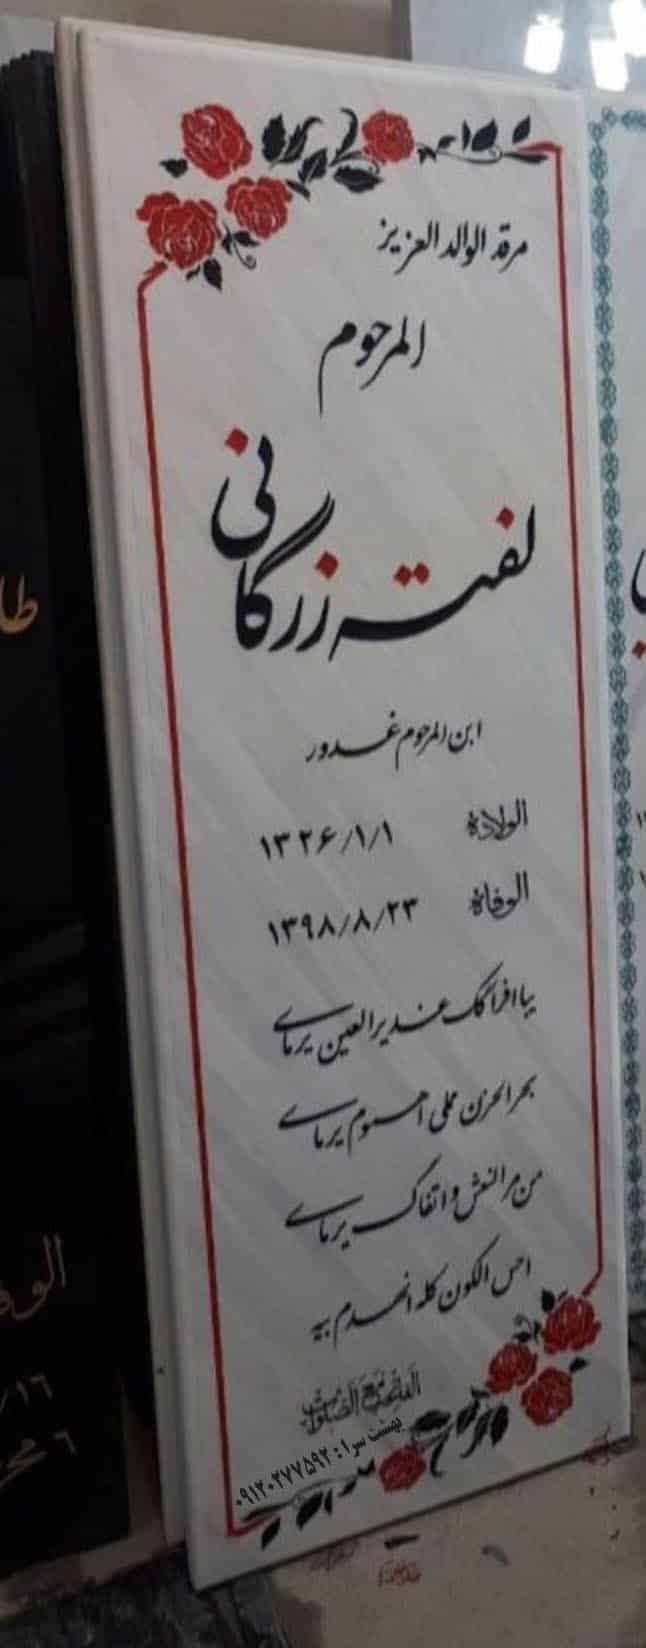 مرقد الوالد العزيز
المرحوم
لفته زرگانی
ابن المرحوم غدور
الولادة ۱۳۲۶/۱/۱
الوفاة ۱۳۹۸/۸/۲۳
يا افراگک غدیر العین یرمای
بحر الحزن مملی اهموم یرمای
من مر النعش و اتفاک یرمای
احس الکون کله انهدم بیه
الفاتحة مع الصلوات
بهشت سرا: ۰۹۱۲۰۲۷۷۵۹۲
طا
الو
/۱۶
۶ محر